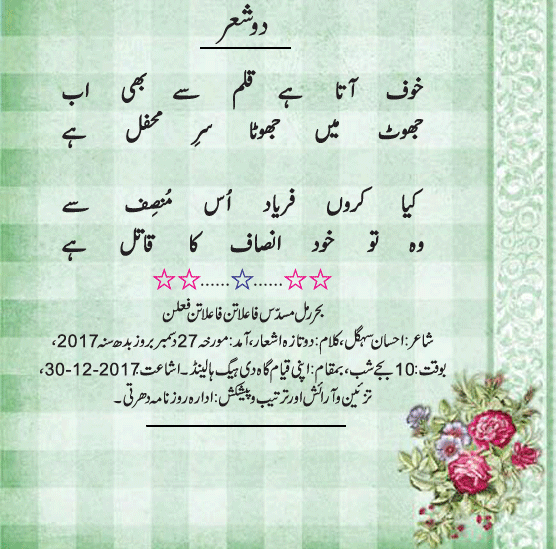 دو شعر
خوف آتا ہے قلم سے بھی اب
جھوٹ میں جھوٹا سرِ محفل ہے
کیا کروں فریاد اُس مُنصِف سے
وہ تو خود انصاف کا قاتل ہے
☆☆......☆......☆☆
بحر رمل مسدّس فاعلاتن فاعلاتن فعلن
شاعر: احسان سہگل، کلام: دو تازہ اشعار، آمد: مورخہ 27 دسمبر بروز بدھ سنہ 2017،
بوقت: 10 بجے شب، بمقام: اپنی قیام گاہ دی ہیگ ہالینڈ۔ اشاعت 2017-12-30،
تزئین و آرائش اور ترتیب و پیشکش: ادارہ روزنامہ دھرتی۔